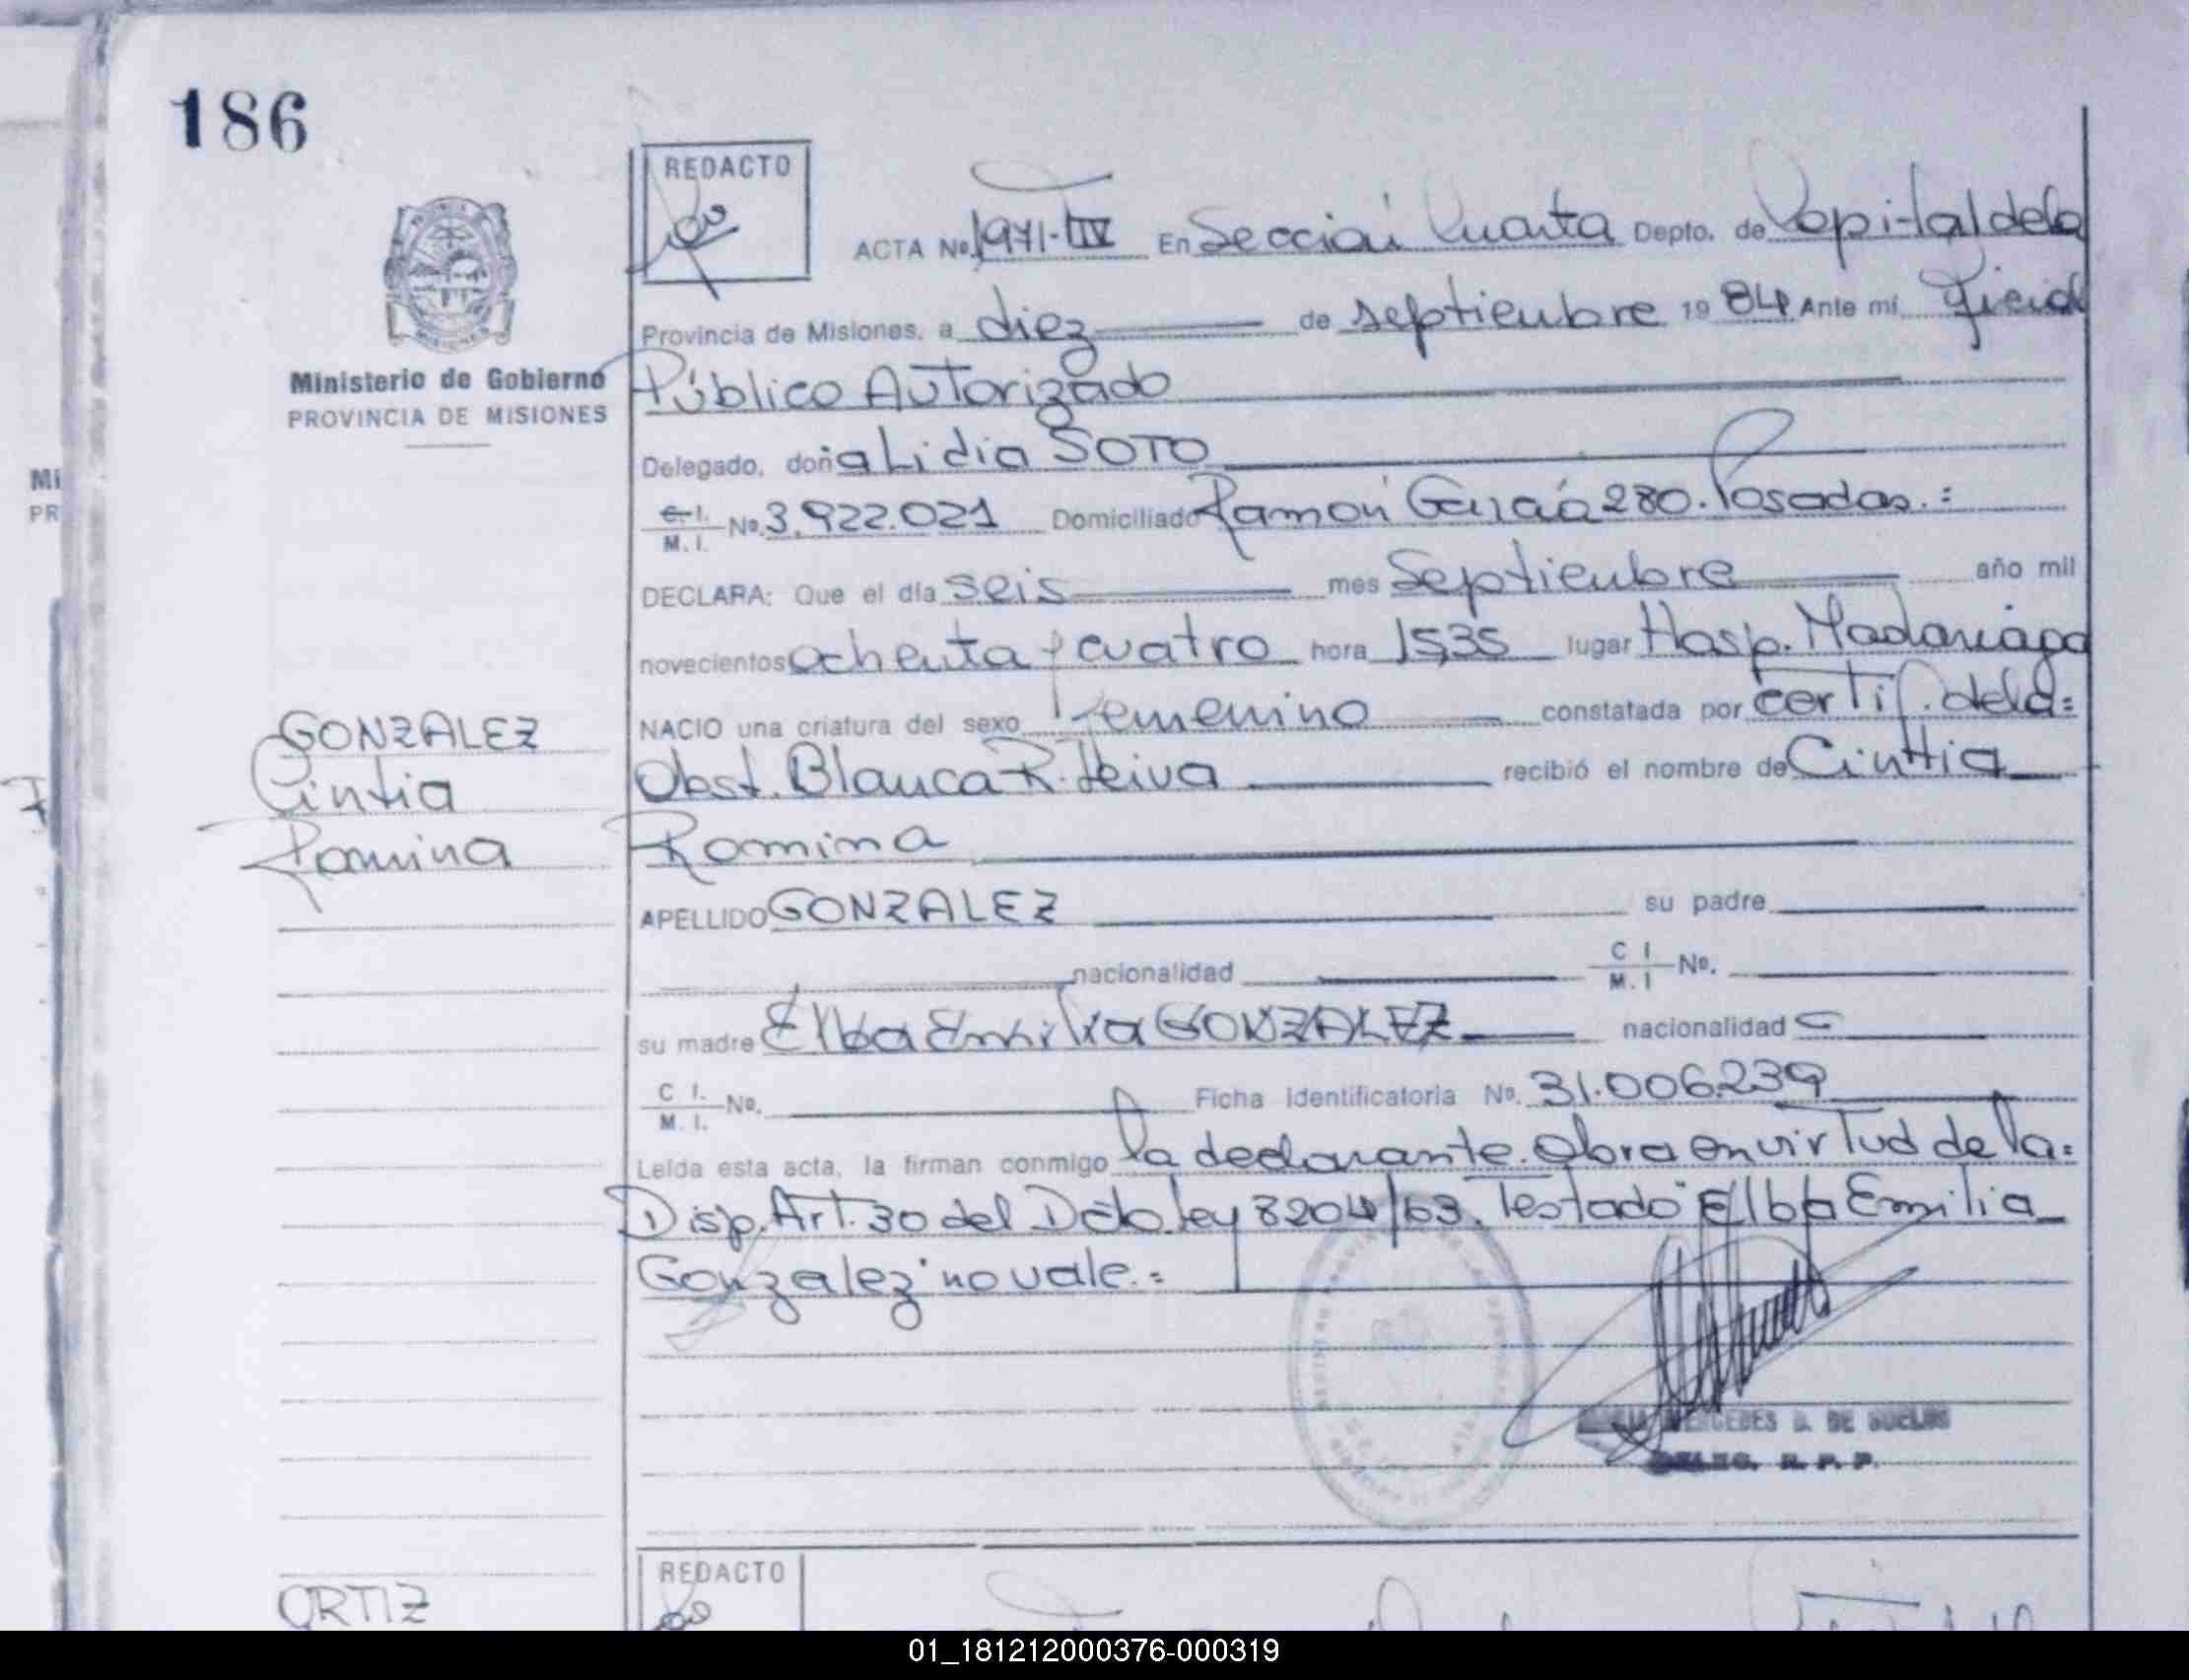 186
REDACTO
ACTA Nº 1971-IV En Sección Cuarta Depto. de Capital de la
Provincia de Misiones, a diez de septiembre 19 84 Ante mí
Ministerio de Gobierno
PROVINCIA DE MISIONES
Público Autorizado
Delegado, doña Lidia SOTO
C. I.
M. I. Nº. 3.922.021 Domiciliado Ramón García 280. Posadas.=
DECLARA: Que el día seis mes Septiembre año mil
novecientos ochenta y cuatro hora 15,35 lugar Hosp. Madariaga
NACIO una criatura del sexo femenino constatada por certif. de la=
Obst. Blanca R. Leiva recibió el nombre de Cintia
Romina
GONZALEZ
Cintia
Romina
APELLIDO GONZALEZ su padre
nacionalidad C I
M. I Nº.
su madre Elba Emilia GONZALEZ nacionalidad
C I.
M. I. Nº. Ficha identificatoria Nº. 31.006.239
Leída esta acta, la firman conmigo la declarante. Obra en virtud de la=
Disp. Art. 30 del Dcto. ley 8204/63. Testado "Elba Emilia
Gonzalez" no vale.=
MERCEDES D. DE
DELEG. R. P. P.
REDACTO
ORTIZ
Mi
PR
01_181212000376-000319